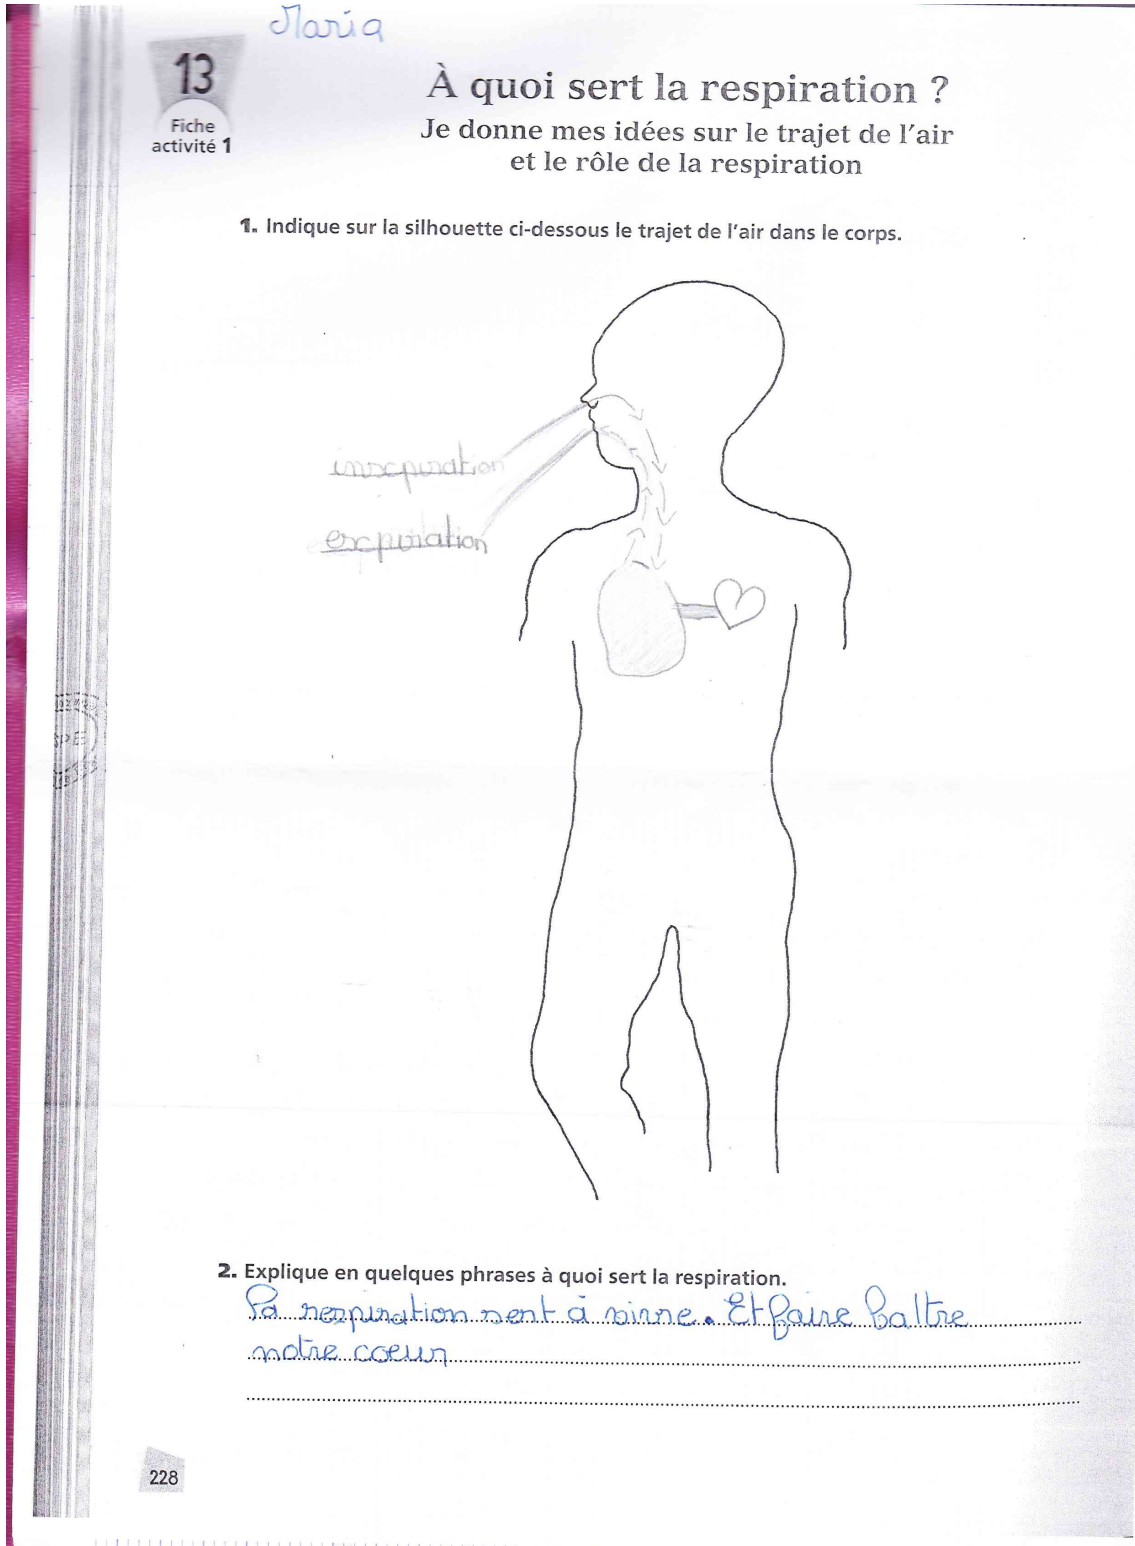 Maria
13
Fiche
activité 1
À quoi sert la respiration ?
Je donne mes idées sur le trajet de l'air
et le rôle de la respiration
1. Indique sur la silhouette ci-dessous le trajet de l'air dans le corps.
inspiration
expiration
2. Explique en quelques phrases à quoi sert la respiration.
La respiration sert à vivre. Et faire battre
notre coeur
228